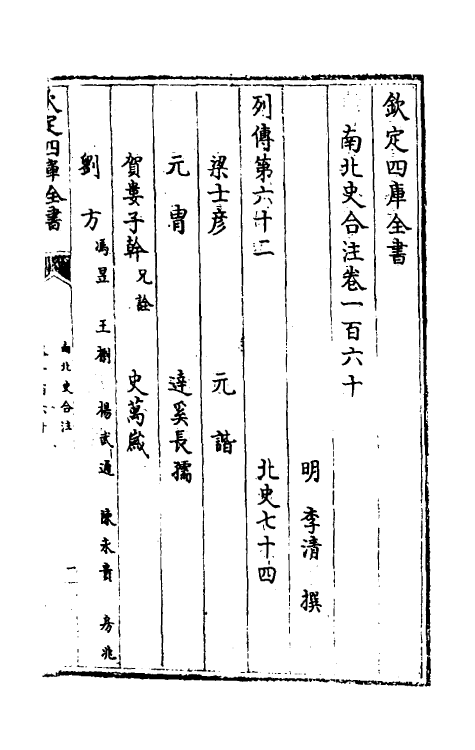 欽定四庫全書
南北史合注卷一百六十
明 李清 撰
列傳第六十二 北史七十四
梁士彦 元諧
元胄 達奚長孺
賀婁子幹 兄詮 史萬歳
劉方 馮昱 王㯹 楊武通 陳永貴 房兆
欽定四庫全書
南北史合注